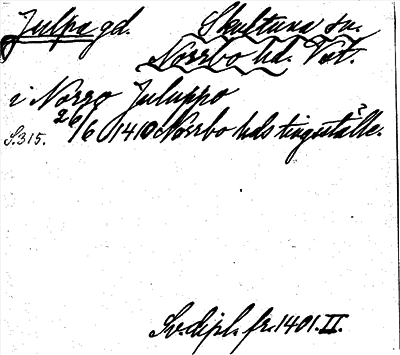 Julpa gd. Skultuna sn.
Norrbo hd. Vstr.
i Norgo Juluppo
S.315. 26/6 1410 Norrbo hds tingställe.
?
Sv.dipl. fr. 1401. II.